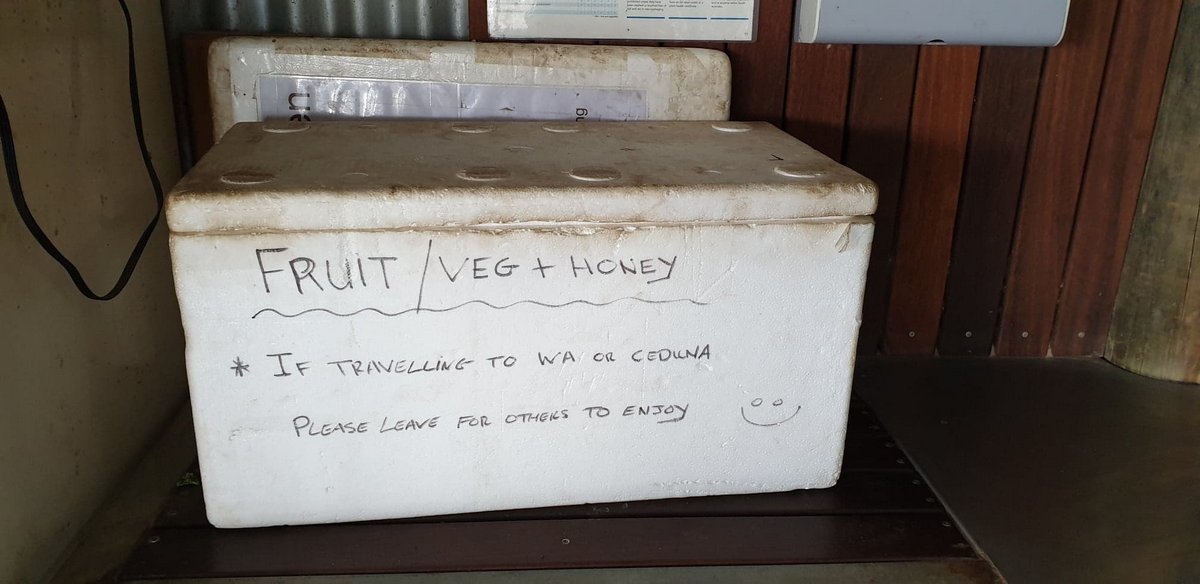 en
ng
FRUIT / VEG + HONEY
* IF TRAVELLING TO WA OR CEDUNA
PLEASE LEAVE FOR OTHERS TO ENJOY